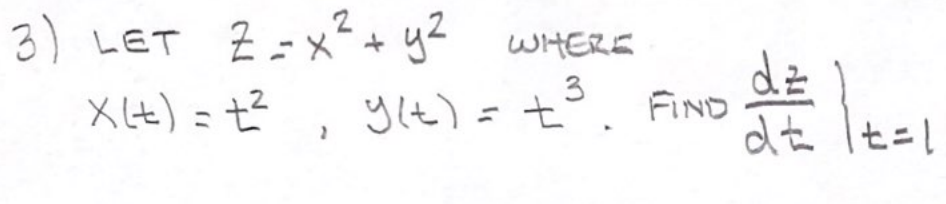 3) LET Z = x² + y² WHERE
X(t) = t², y(t) = t³. FIND dz/dt |t=1